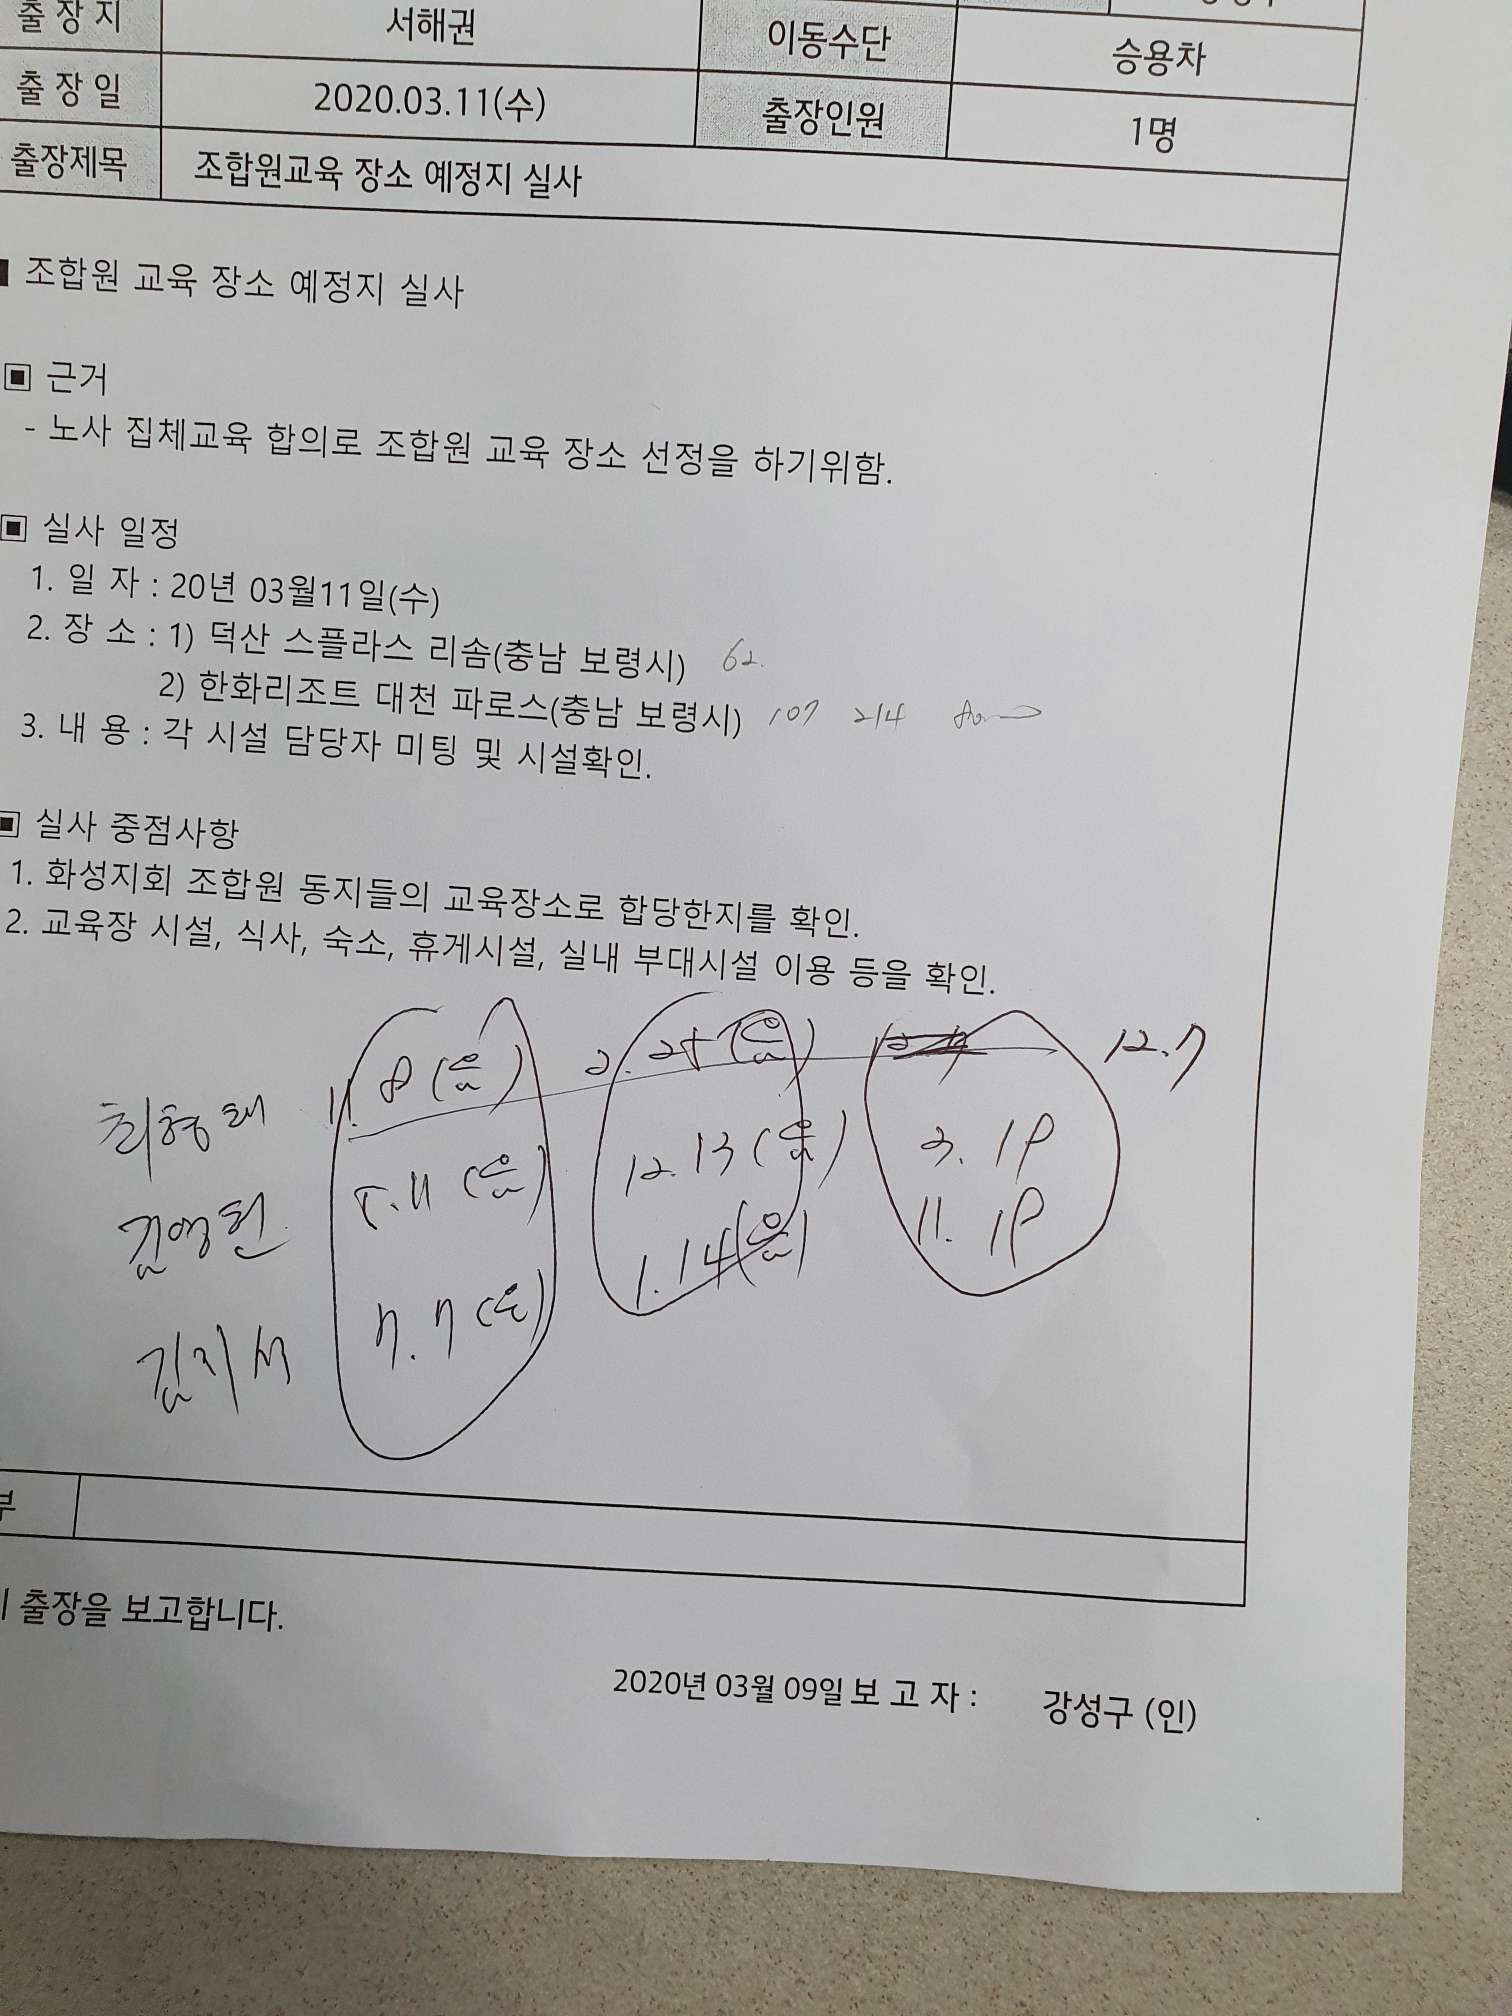 출 장 지 서해권 이동수단 승용차
출 장 일 2020.03.11(수) 출장인원 1명
출장제목 조합원교육 장소 예정지 실사
■ 조합원 교육 장소 예정지 실사
▣ 근거
- 노사 집체교육 합의로 조합원 교육 장소 선정을 하기위함.
▣ 실사 일정
1. 일 자 : 20년 03월11일(수)
2. 장 소 : 1) 덕산 스플라스 리솜(충남 보령시) 62.
2) 한화리조트 대천 파로스(충남 보령시) 107 214
3. 내 용 : 각 시설 담당자 미팅 및 시설확인.
▣ 실사 중점사항
1. 화성지회 조합원 동지들의 교육장소로 합당한지를 확인.
2. 교육장 시설, 식사, 숙소, 휴게시설, 실내 부대시설 이용 등을 확인.
최형태 11. 8 (음) 2. 25 (음) 12.7
김영헌 5.11 (음) 12.13 (음) 3. 18
1.14 (음) 11. 18
김지석 7.7 (음)
부
출장을 보고합니다.
2020년 03월 09일 보 고 자 : 강성구 (인)